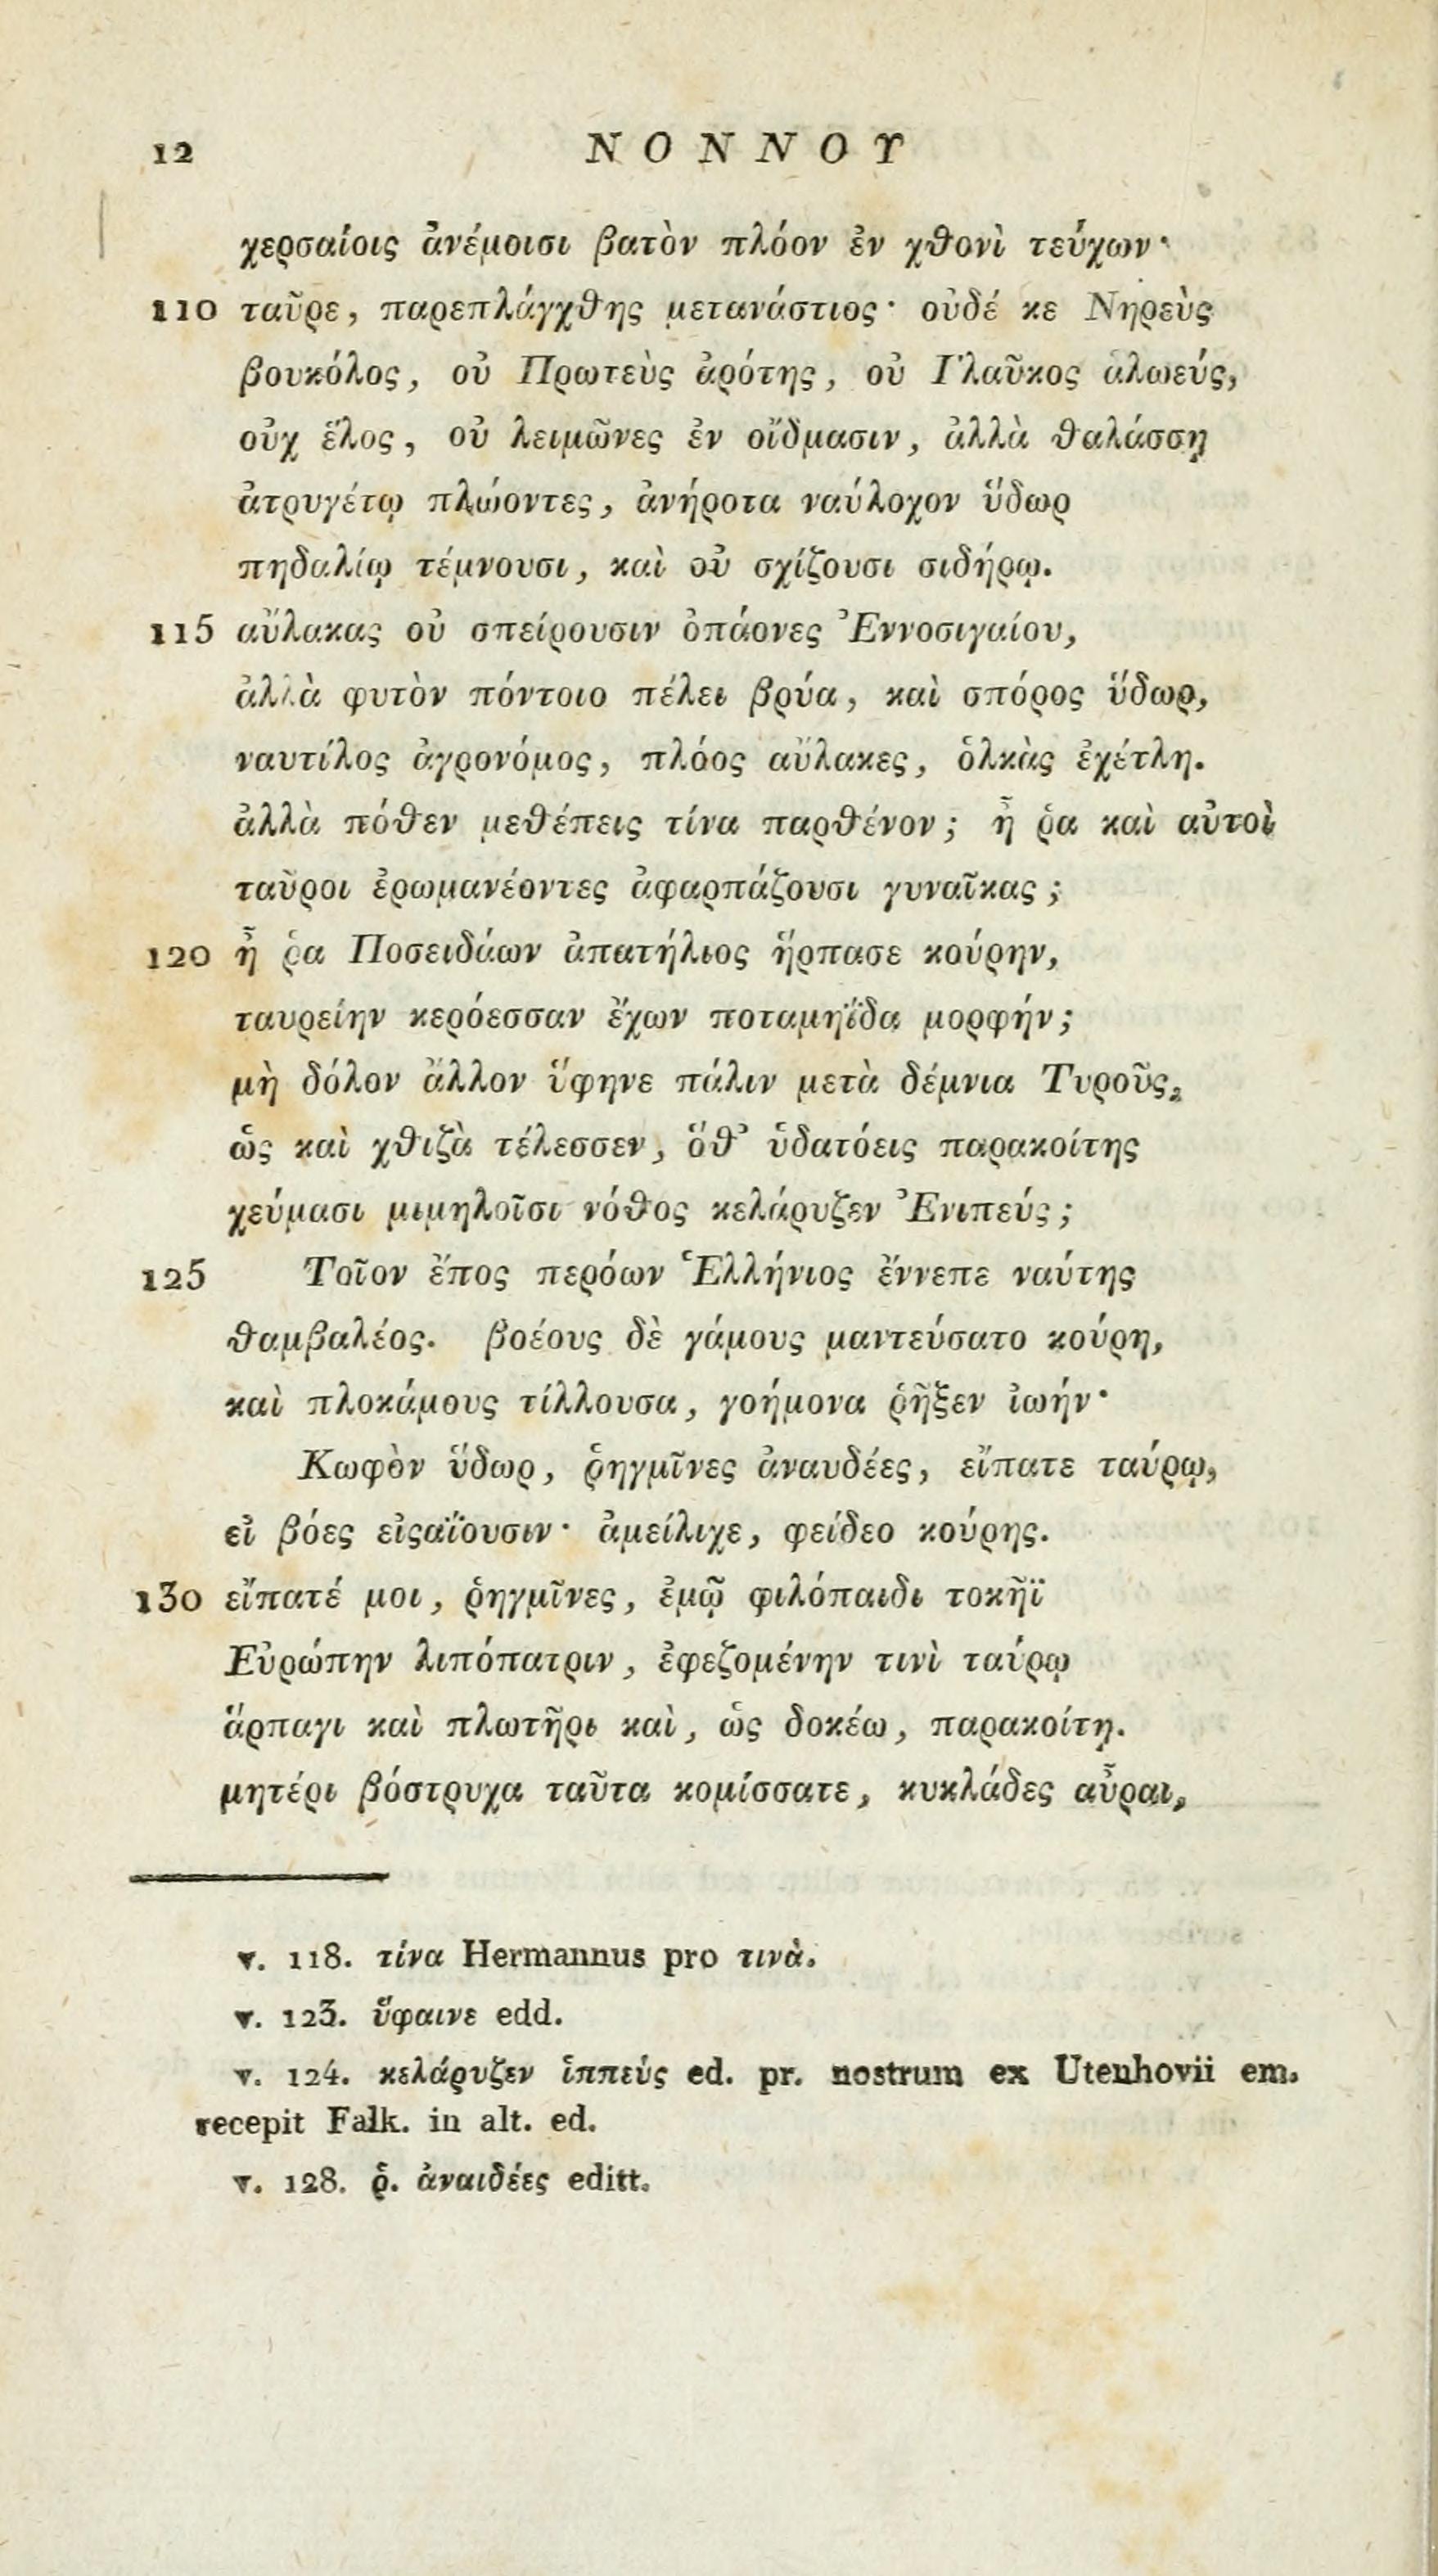 12 ΝΟΝΝΟΥ
χερσαίοις ἀνέμοισι βατὸν πλόον ἐν χθονὶ τεύχων·
110 ταῦρε, παρεπλάγχθης μετανάστιος· οὐδέ κε Νηρεὺς
βουκόλος, οὐ Πρωτεὺς ἀρότης, οὐ Γλαῦκος ἀλωεύς,
οὐχ ἕλος, οὐ λειμῶνες ἐν οἴδμασιν, ἀλλὰ θαλάσσῃ
ἀτρυγέτῳ πλώοντες, ἀνήροτα ναύλοχον ὕδωρ
πηδαλίῳ τέμνουσι, καὶ οὐ σχίζουσι σιδήρῳ.
115 αὔλακας οὐ σπείρουσιν ὀπάονες Ἐννοσιγαίου,
ἀλλὰ φυτὸν πόντοιο πέλει βρύα, καὶ σπόρος ὕδωρ,
ναυτίλος ἀγρονόμος, πλόος αὔλακες, ὁλκὰς ἐχέτλη.
ἀλλὰ πόθεν μεθέπεις τίνα παρθένον; ἦ ῥα καὶ αὐτοὶ
ταῦροι ἐρωμανέοντες ἀφαρπάζουσι γυναῖκας;
120 ἦ ῥα Ποσειδάων ἀπατήλιος ἥρπασε κούρην,
ταυρείην κερόεσσαν ἔχων ποταμηΐδα μορφήν;
μὴ δόλον ἄλλον ὕφηνε πάλιν μετὰ δέμνια Τυροῦς,
ὡς καὶ χθιζὰ τέλεσσεν, ὅθ' ὑδατόεις παρακοίτης
χεύμασι μιμηλοῖσι νόθος κελάρυζεν Ἐνιπεύς;
125 Τοῖον ἔπος περόων Ἑλλήνιος ἔννεπε ναύτης
θαμβαλέος. βοέους δὲ γάμους μαντεύσατο κούρη,
καὶ πλοκάμους τίλλουσα, γοήμονα ῥῆξεν ἰωήν·
Κωφὸν ὕδωρ, ῥηγμῖνες ἀναυδέες, εἴπατε ταύρῳ,
εἰ βόες εἰςαΐουσιν· ἀμείλιχε, φείδεο κούρης.
130 εἴπατέ μοι, ῥηγμῖνες, ἐμῷ φιλόπαιδι τοκῆϊ
Εὐρώπην λιπόπατριν, ἐφεζομένην τινὶ ταύρῳ
ἅρπαγι καὶ πλωτῆρι καὶ, ὡς δοκέω, παρακοίτῃ.
μητέρι βόστρυχα ταῦτα κομίσσατε, κυκλάδες αὖραι,
v. 118. τίνα Hermannus pro τινὰ.
v. 123. ὕφαινε edd.
v. 124. κελάρυζεν ἱππεύς ed. pr. nostrum ex Utenhovii em.
recepit Falk. in alt. ed.
v. 128. ῥ. ἀναιδέες editt.